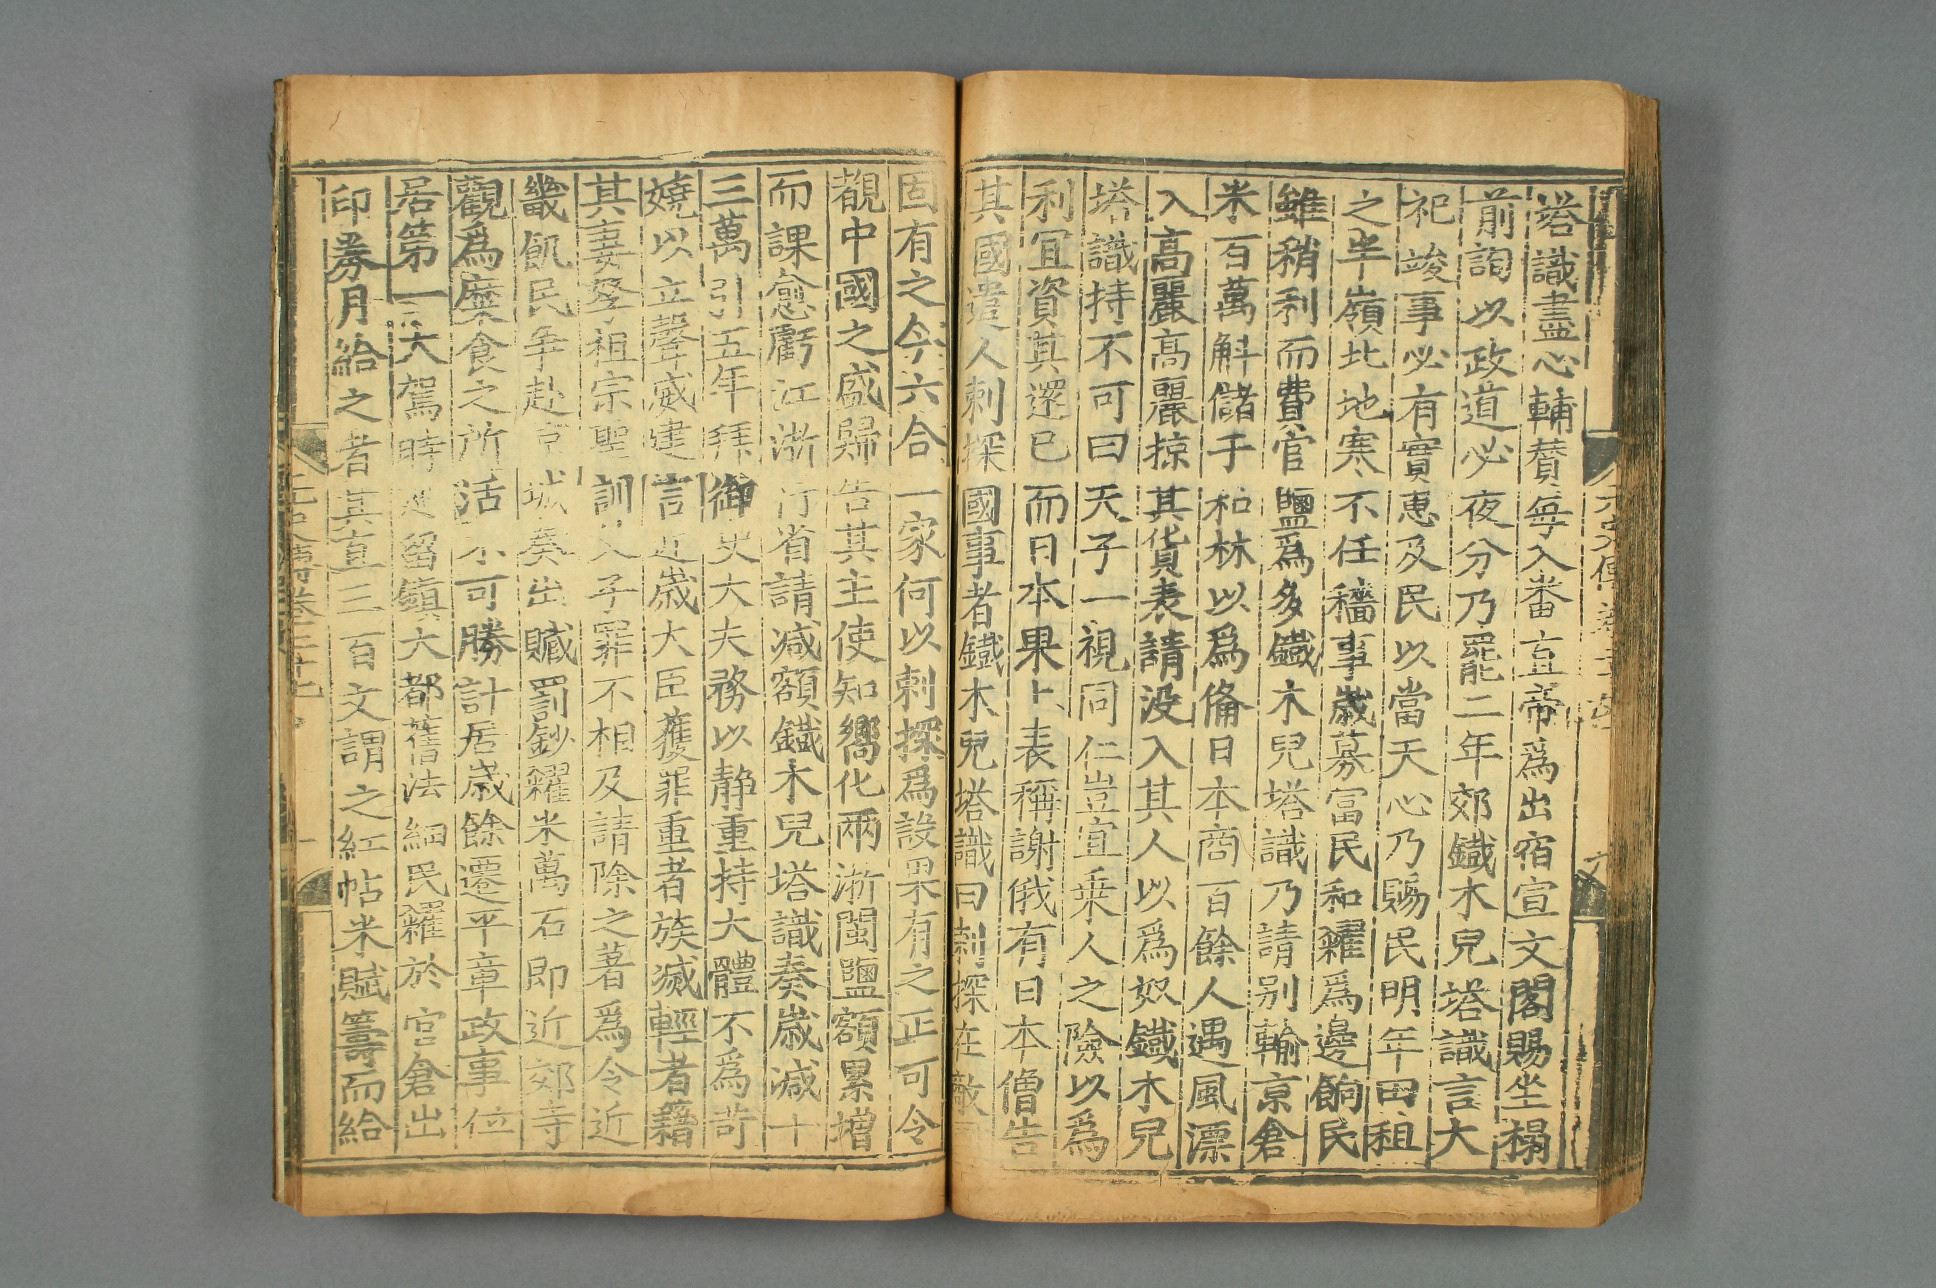 塔識盡心輔賛每入番直帝爲出宿宣文閣賜坐榻
前詢以政道必夜分乃罷二年郊鐡木兒塔識言大
祀竣事必有實惠及民以當天心乃賜民明年田租
之半嶺北地寒不任穡事歲募富民和糴爲邊餉民
雖稍利而費官鹽爲多鐡木兒塔識乃請别輸京倉
米百萬斛儲于和林以爲俻日本商百餘人遇風漂
入高麗高麗掠其貨表請没入其人以爲奴鐡木兒
塔識持不可曰天子一視同仁豈宜乗人之險以爲
利宜資其還已而日本果上表稱謝俄有日本僧告
其國遣人刺探國事者鐡木兒塔識曰刺探在敵國
固有之今六合一家何以刺探爲設果有之正可令
覩中國之盛歸告其主使知嚮化兩浙閩鹽額累增
而課愈虧江浙行省請减額鐡木兒塔識奏歲减十
三萬引五年拜御史大夫務以静重持大體不爲苛
嬈以立聲威建言近歲大臣獲罪重者族滅輕者籍
其妻孥祖宗聖訓父子罪不相及請除之著爲令近
畿飢民争赴京城奏出贓罰鈔糴米萬石即近郊寺
觀爲糜食之所活不可勝計居歲餘遷平章政事位
居第一大駕時廵留鎮大都舊法細民糴於官倉出
印劵月給之者其直三百文謂之紅帖米賦籌而給
元史列傳卷二十七